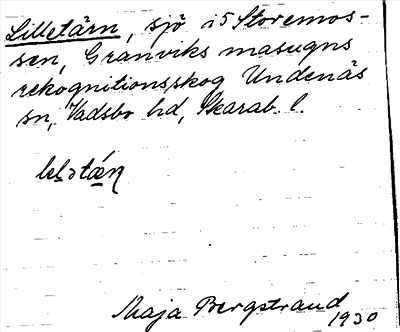 Lilletärn, sjö i Storemos-
sen, Granviks masugns
rekognitionsskog Undenäs
sn, Vadsbo hd, Skarab. l.
Maja Bergstrand
1930